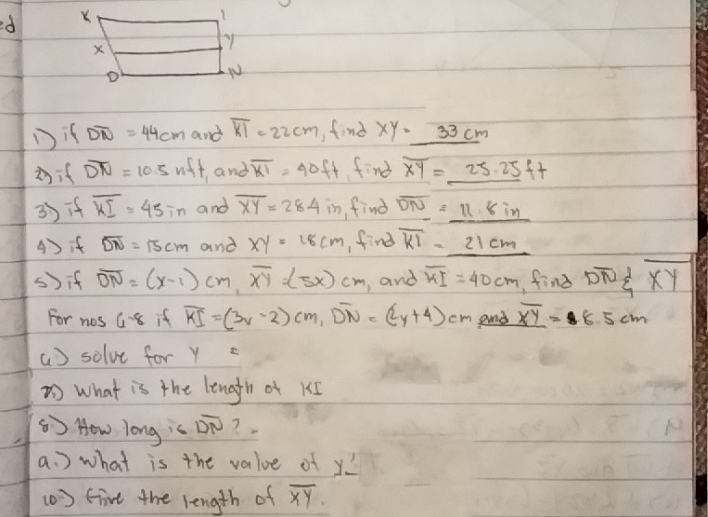 ed
K I
X Y
D N
1) if DN = 44cm and KI = 22cm, find XY = 33 cm
2) if DN = 10.5 ft, and KI = 40ft, find XY = 25.25 ft
3) if KI = 45 in and XY = 28.4 in, find DN = 11.8 in
4) if DN = 15cm and XY = 18cm, find KI = 21 cm
5) if DN = (x-1) cm, XY = (5x) cm, and KI = 40cm, find DN & XY
For nos 6-8 if KI = (3y-2) cm, DN = (2y+4) cm and XY = 8.5 cm
6) solve for Y =
7) What is the length of KI
8) How long is DN?
9.) what is the value of y?
10) Give the length of XY.